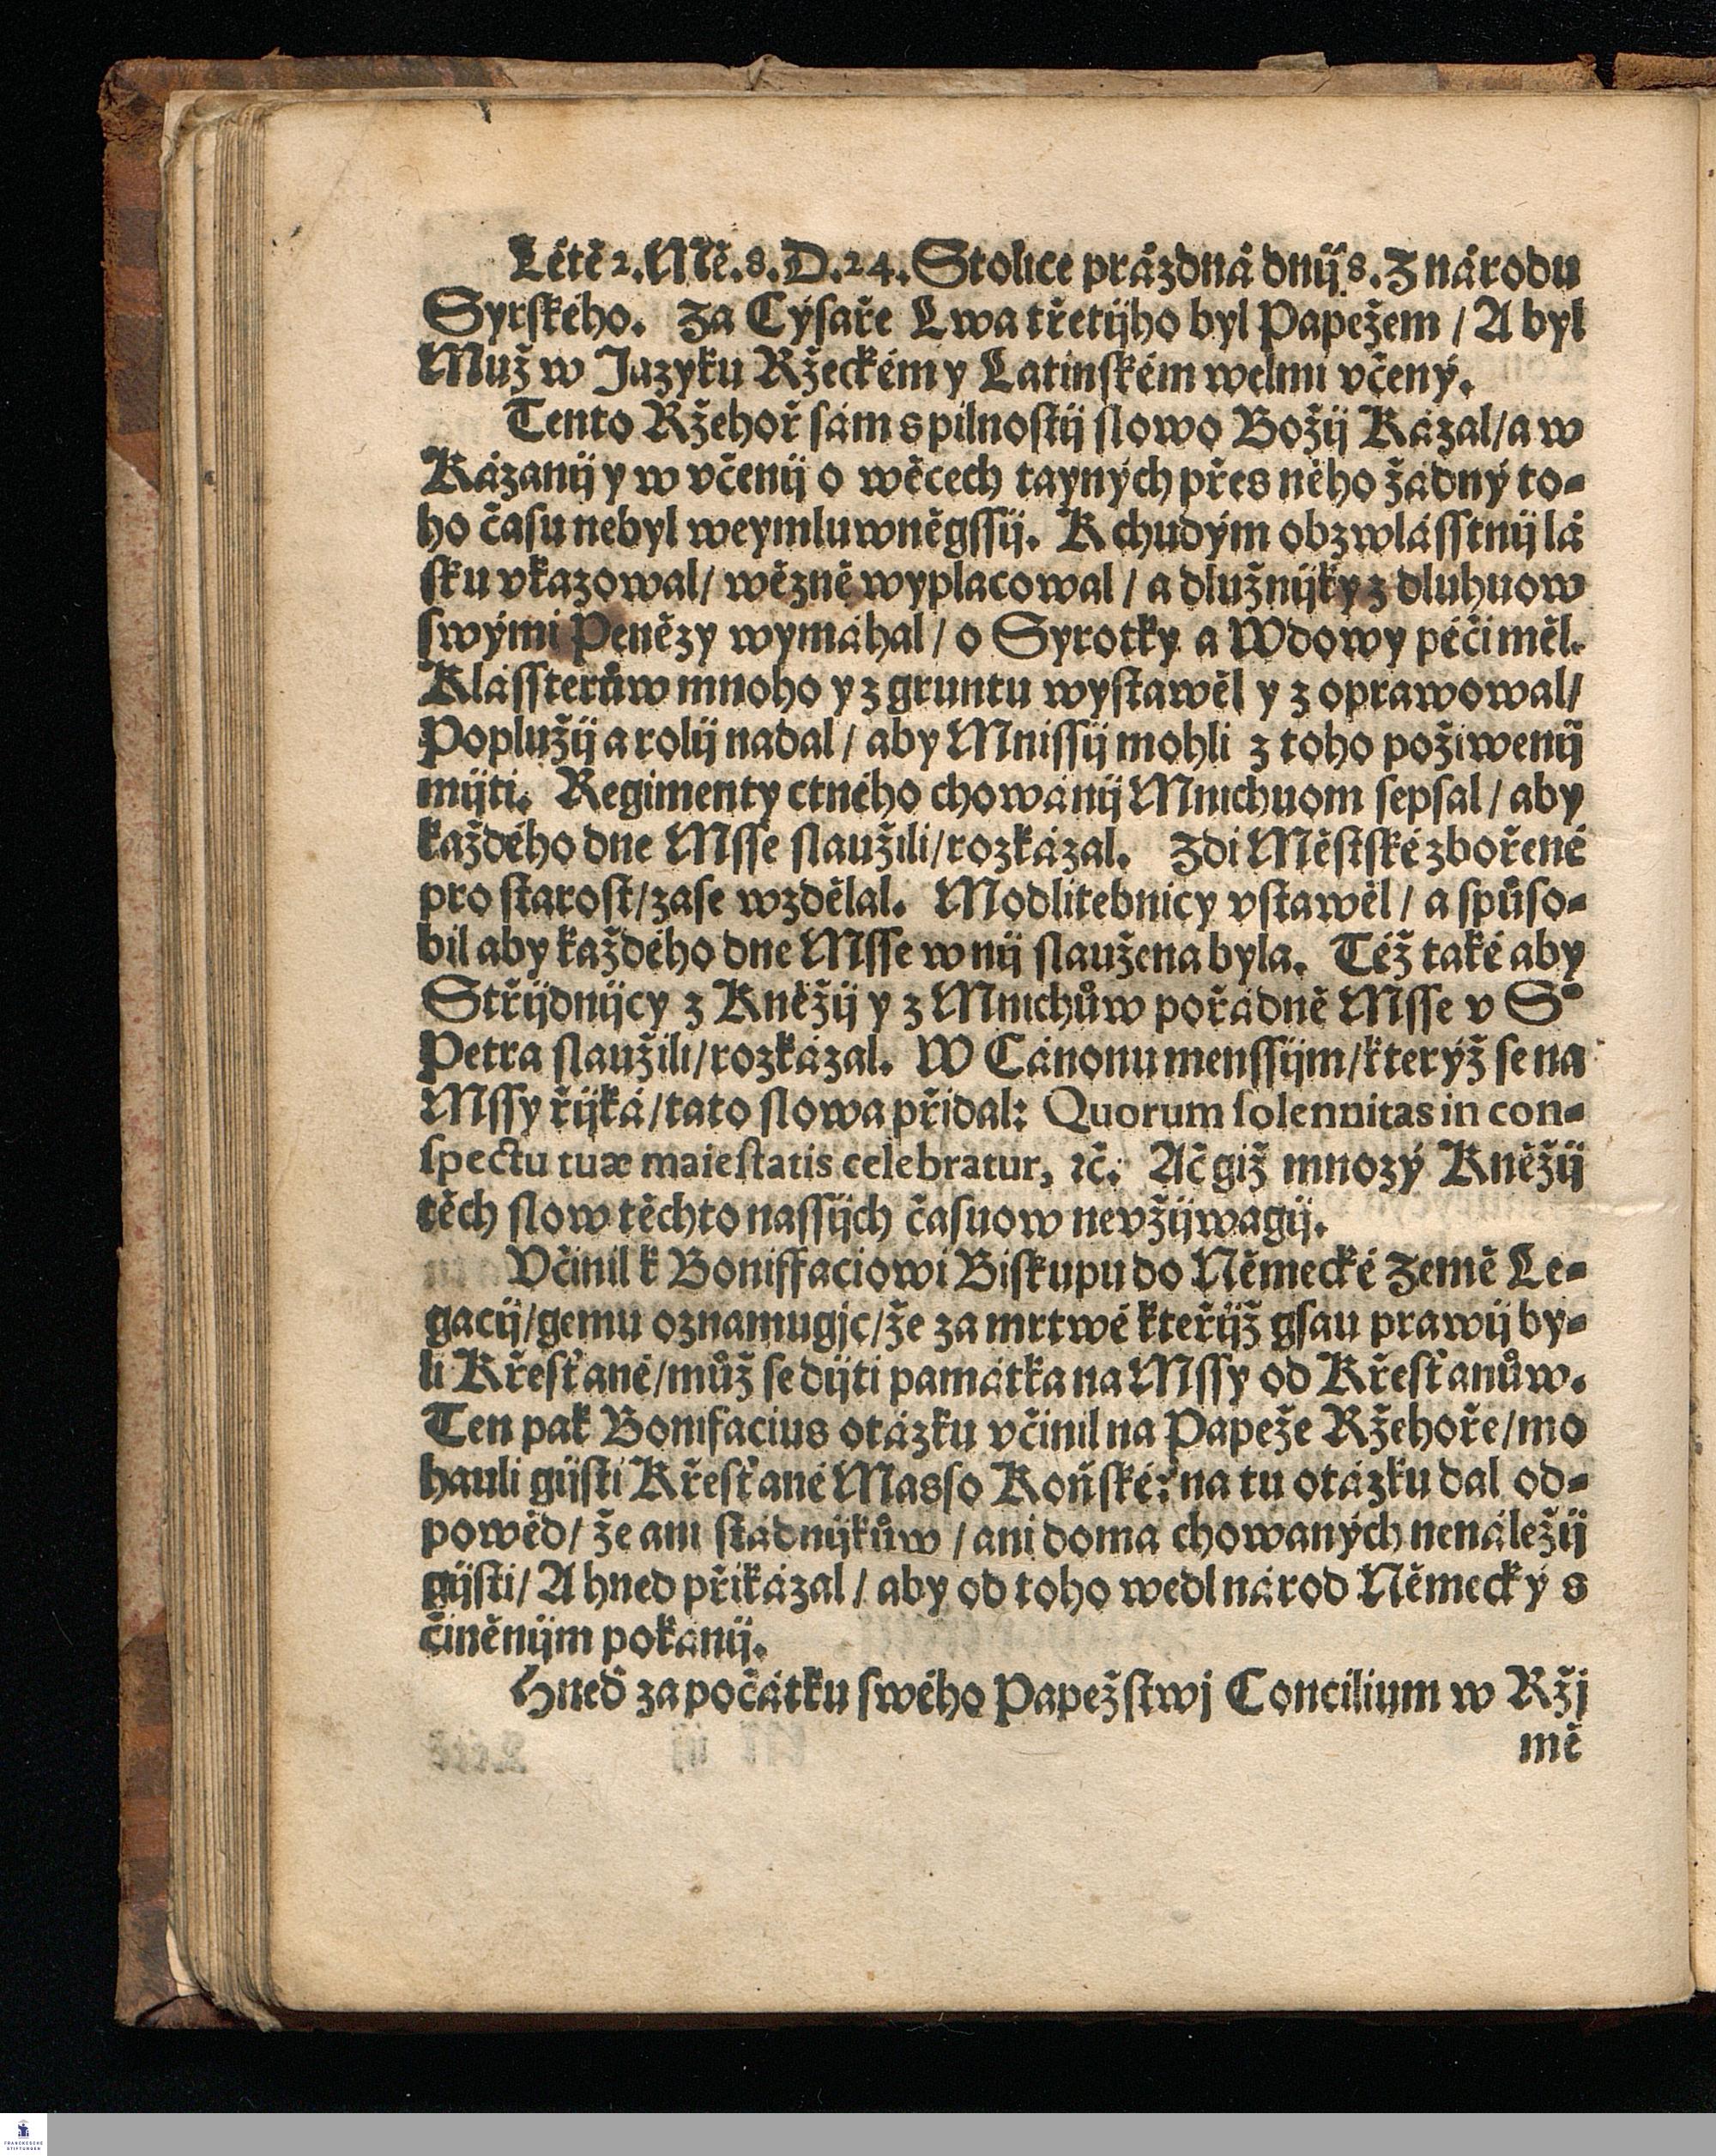 Létě 2. Mě. 8. D. 24. Stolice prázdná dnij 8. Z národu
Syrského. Za Cýsaře Lwa třetijho byl Papežem / A byl
Muž w Jazyku Ržeckém y Latinském welmi včený.
Tento Ržehoř sám s pilnostij slowo Božij Kázal / a w
Kázanij y w včenij o wěcech tayných přes něho žádný to-
ho času nebyl weymluwněgssij. K chudým obzwlásstnij lá
sku vkazowal / wězně wyplacowal / a dlužnijky z dluhuow
swými Penězy wymáhal / o Syrotky a Wdowy péči měl.
Klássterůw mnoho y z gruntu wystawěl y z oprawowal /
Poplužij a rolij nadal / aby Mnissij mohli z toho požiwenij
mijti. Regimenty ctného chowánij Mnichuom sepsal / aby
každého dne Msse slaužili / rozkázal. Zdi Městské zbořené
pro starost / zase wzdělal. Modlitebnicy vstawěl / a spůso-
bil aby každého dne Msse w nij slaužena byla. Též také aby
Střijdnijcy z Kněžij y z Mnichůw pořádně Msse v S°
Petra slaužili / rozkázal. W Cánonu menssijm / kterýž se na
Mssy řijká / tato slowa přidal: Quorum solennitas in con-
spectu tuæ maiestatis celebratur, ꝛč. Ač giž mnozý Kněžij
těch slow těchto nassijch časuow nevžijwagij.
Včinil k Boniffaciowi Biskupu do Německé Země Le-
gacij / gemu oznamugjc / že za mrtwé kteřijž gsau prawij by-
li Křesťané / můž se dijti památka na Mssy od Křesťanůw.
Ten pak Bonifacius otázku včinil na Papeže Ržehoře / mo
hauli gijsti Křesťané Masso Koňské: na tu otázku dal od-
powěd / že ani stádnijkůw / ani doma chowaných nenáležij
gijsti / A hned přikázal / aby od toho wedl národ Německý s
činěnijm pokánij.
Hneď za počátku swého Papežstwj Concilium w Ržj
mě
FRANCKESCHE
STIFTUNGEN